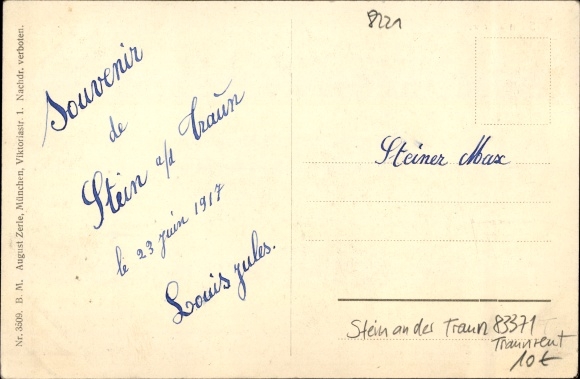 8221
Souvenir
de
Stein a/d Traun
le 23 juin 1917
Louis Jules.
Steiner Max
Stein an der Traun 83371
Traunreut
10 €
Nr. 3809. B. M. August Zerle, München, Viktoriastr. 1. Nachdr. verboten.